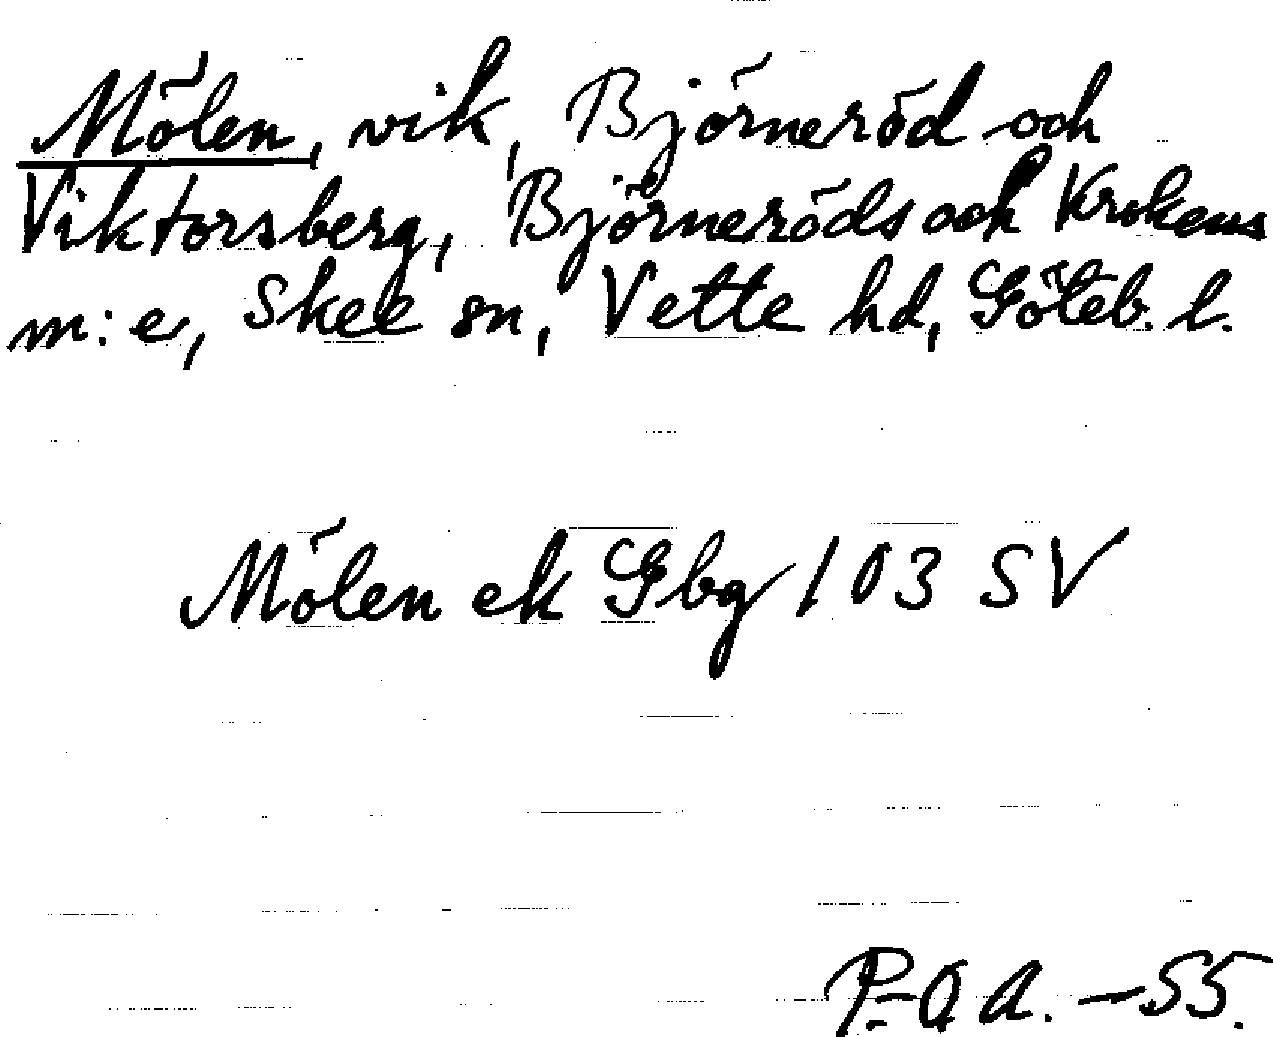 Mölen, vik, Björneröd och
Viktorsberg, Björneröds och Krokens
m:er, Skee sn, Vette hd, Göteb. l.
Mölen ek Gbg 103 SV
P.-O A. - 55.